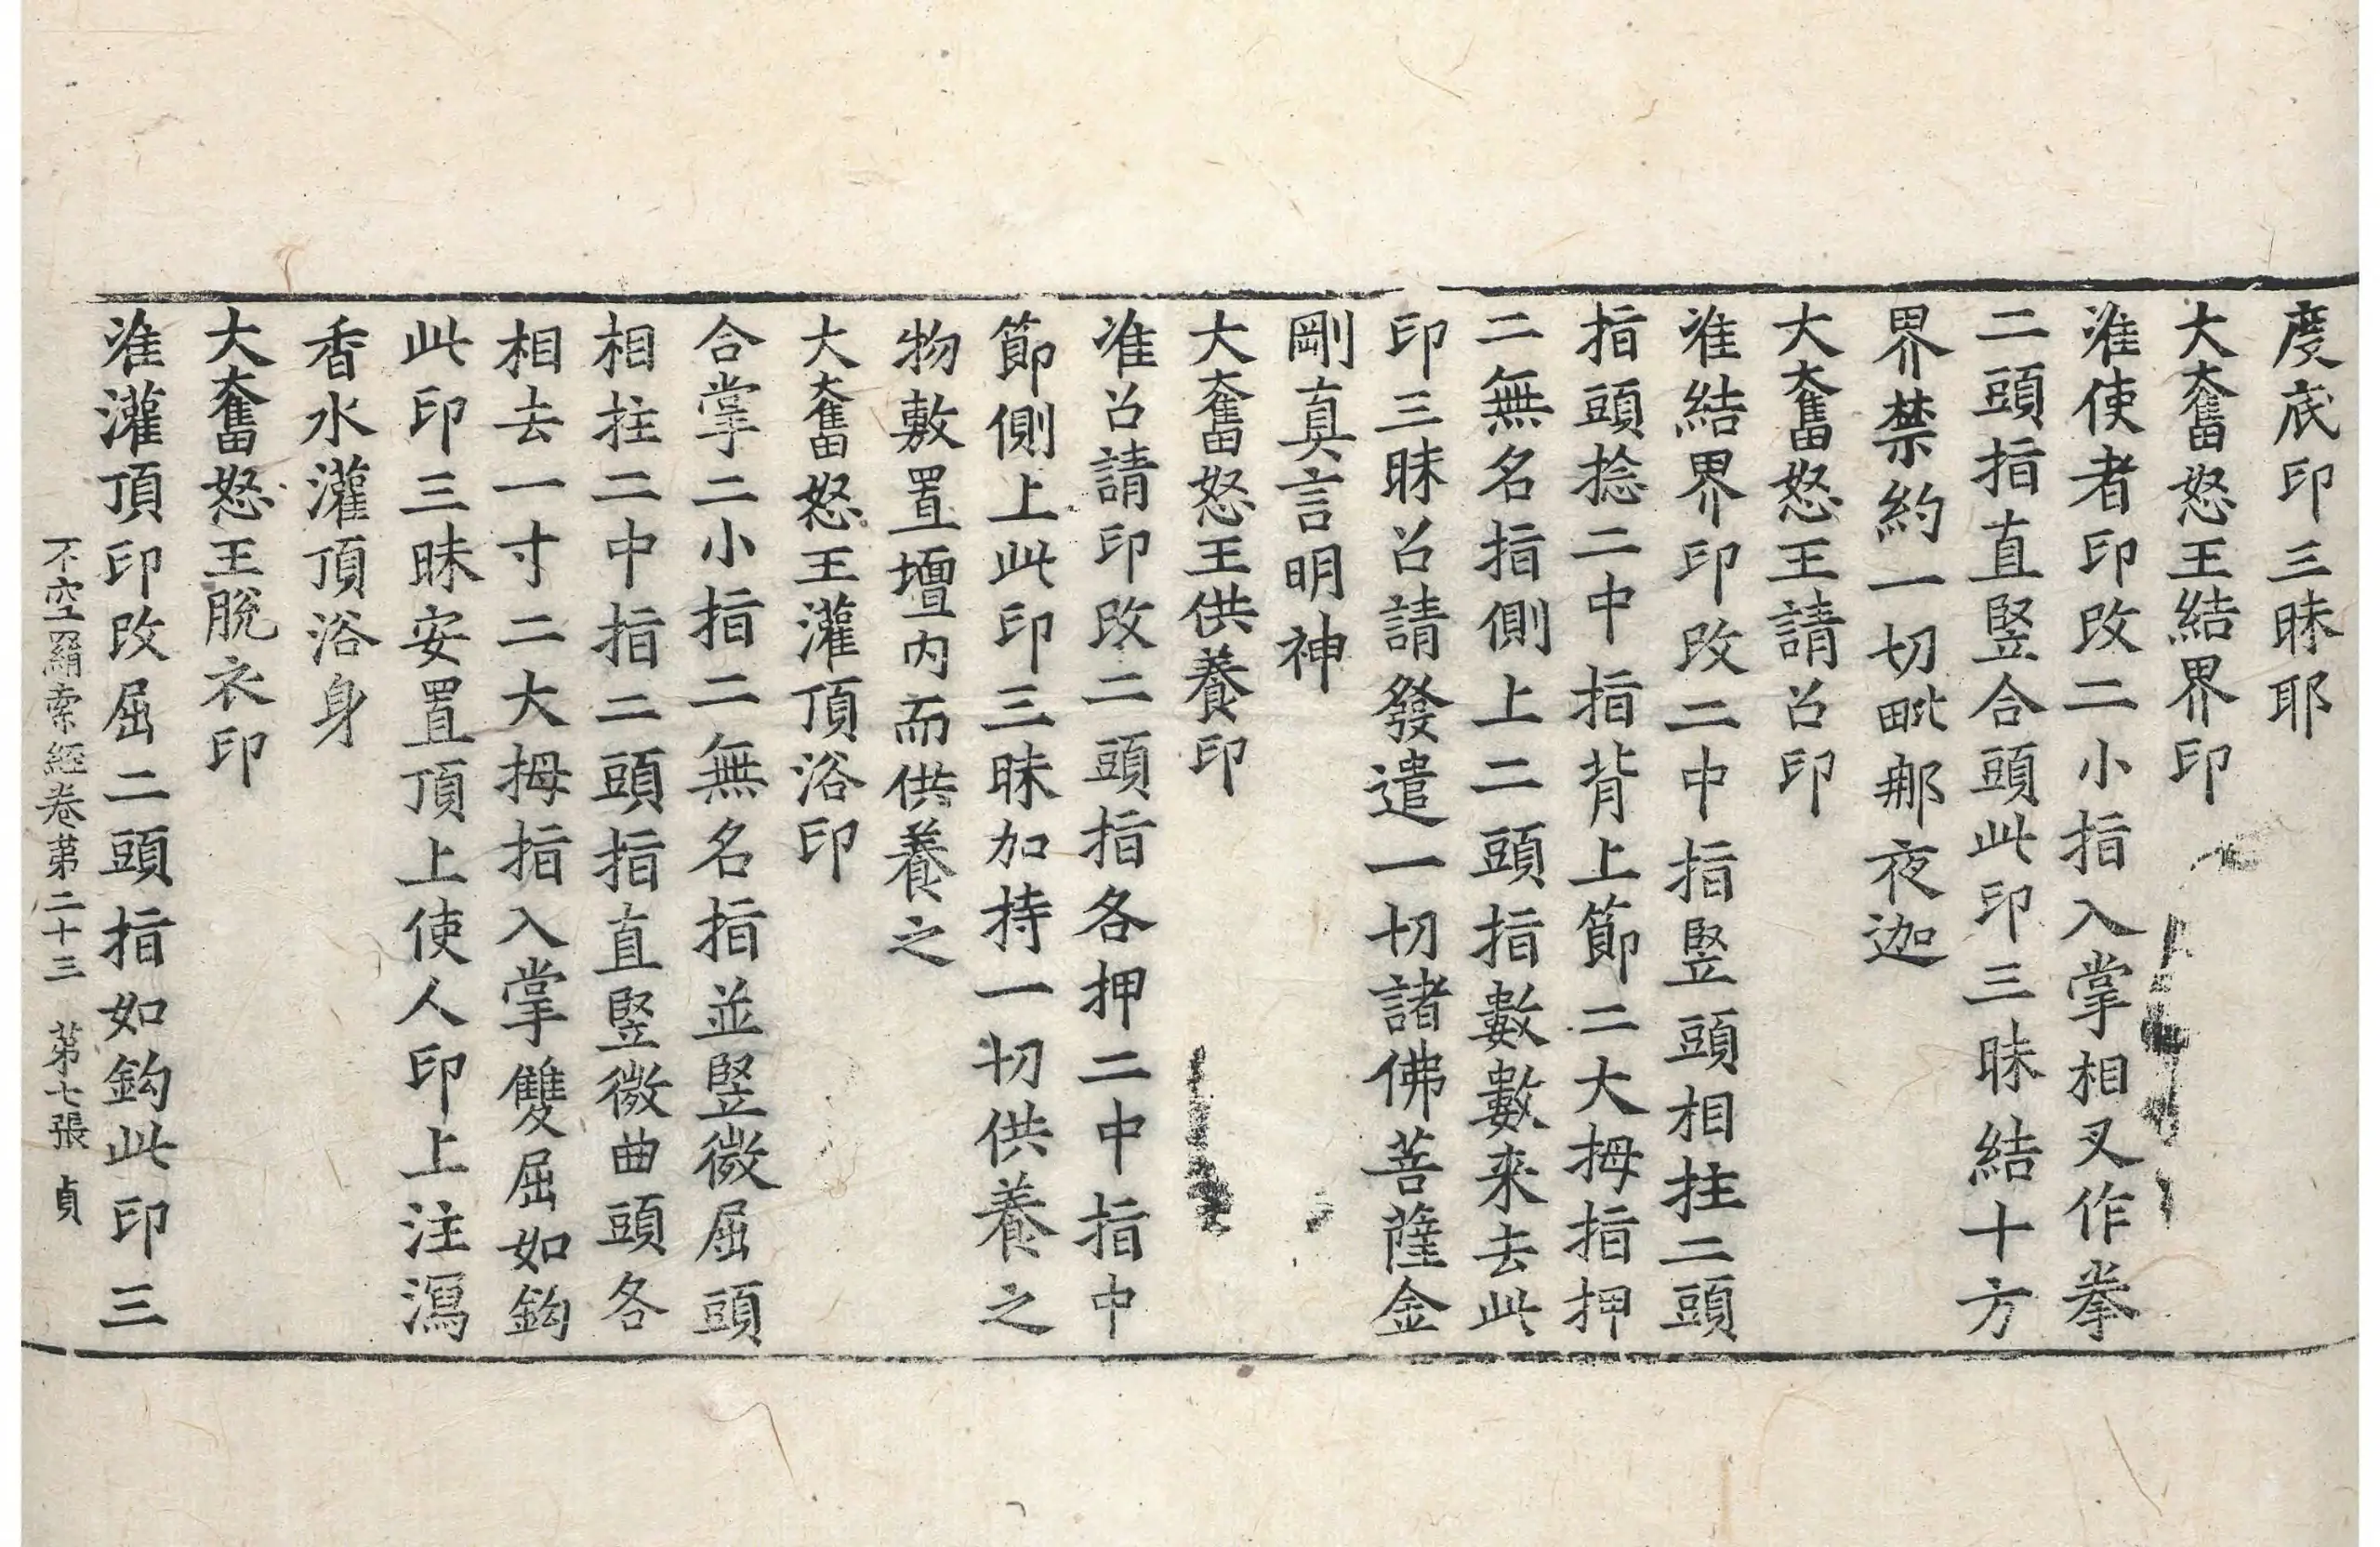 度底印三昧耶
大奮怒王結界印
准使者印改二小指入掌相叉作拳
二頭指直竪合頭此印三昧結十方
界禁約一切毗那夜迦
大奮怒王請召印
准結界印改二中指竪頭相拄二頭
指頭捻二中指背上節二大拇指押
二無名指側上二頭指數數来去此
印三昧召請發遣一切諸佛菩薩金
剛真言明神
大奮怒王供養印
准召請印改二頭指各押二中指中
節側上此印三昧加持一切供養之
物敷置壇内而供養之
大奮怒王灌頂浴印
合掌二小指二無名指並竪微屈頭
相拄二中指二頭指直竪微曲頭各
相去一寸二大拇指入掌雙屈如鈎
此印三昧安置頂上使人印上注瀉
香水灌頂浴身
大奮怒王脫衣印
准灌頂印改屈二頭指如鈎此印三
不空羂索經卷第二十三 第七張 貞